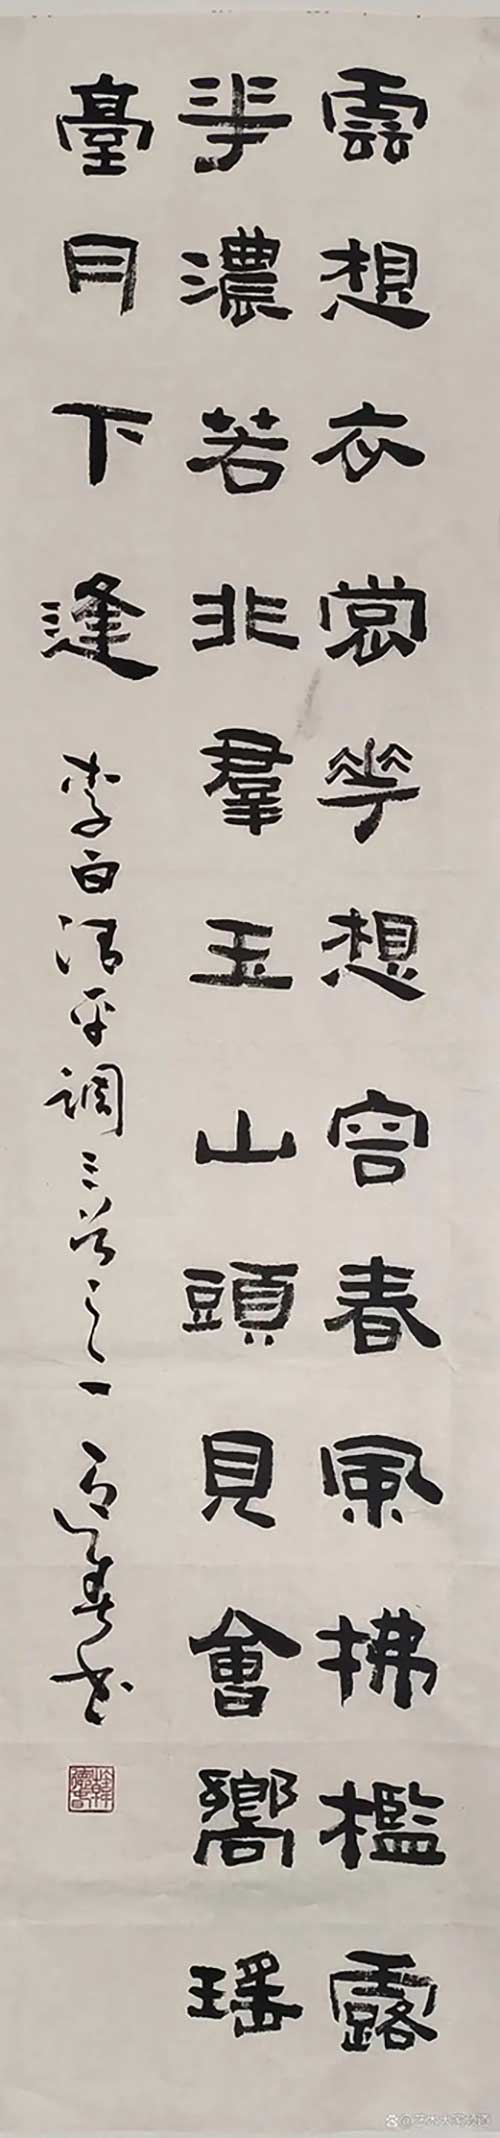 雲想衣裳華想容春風拂檻露
華濃若非羣玉山頭見會嚮瑶
臺月下逢
李白清平調三首之一